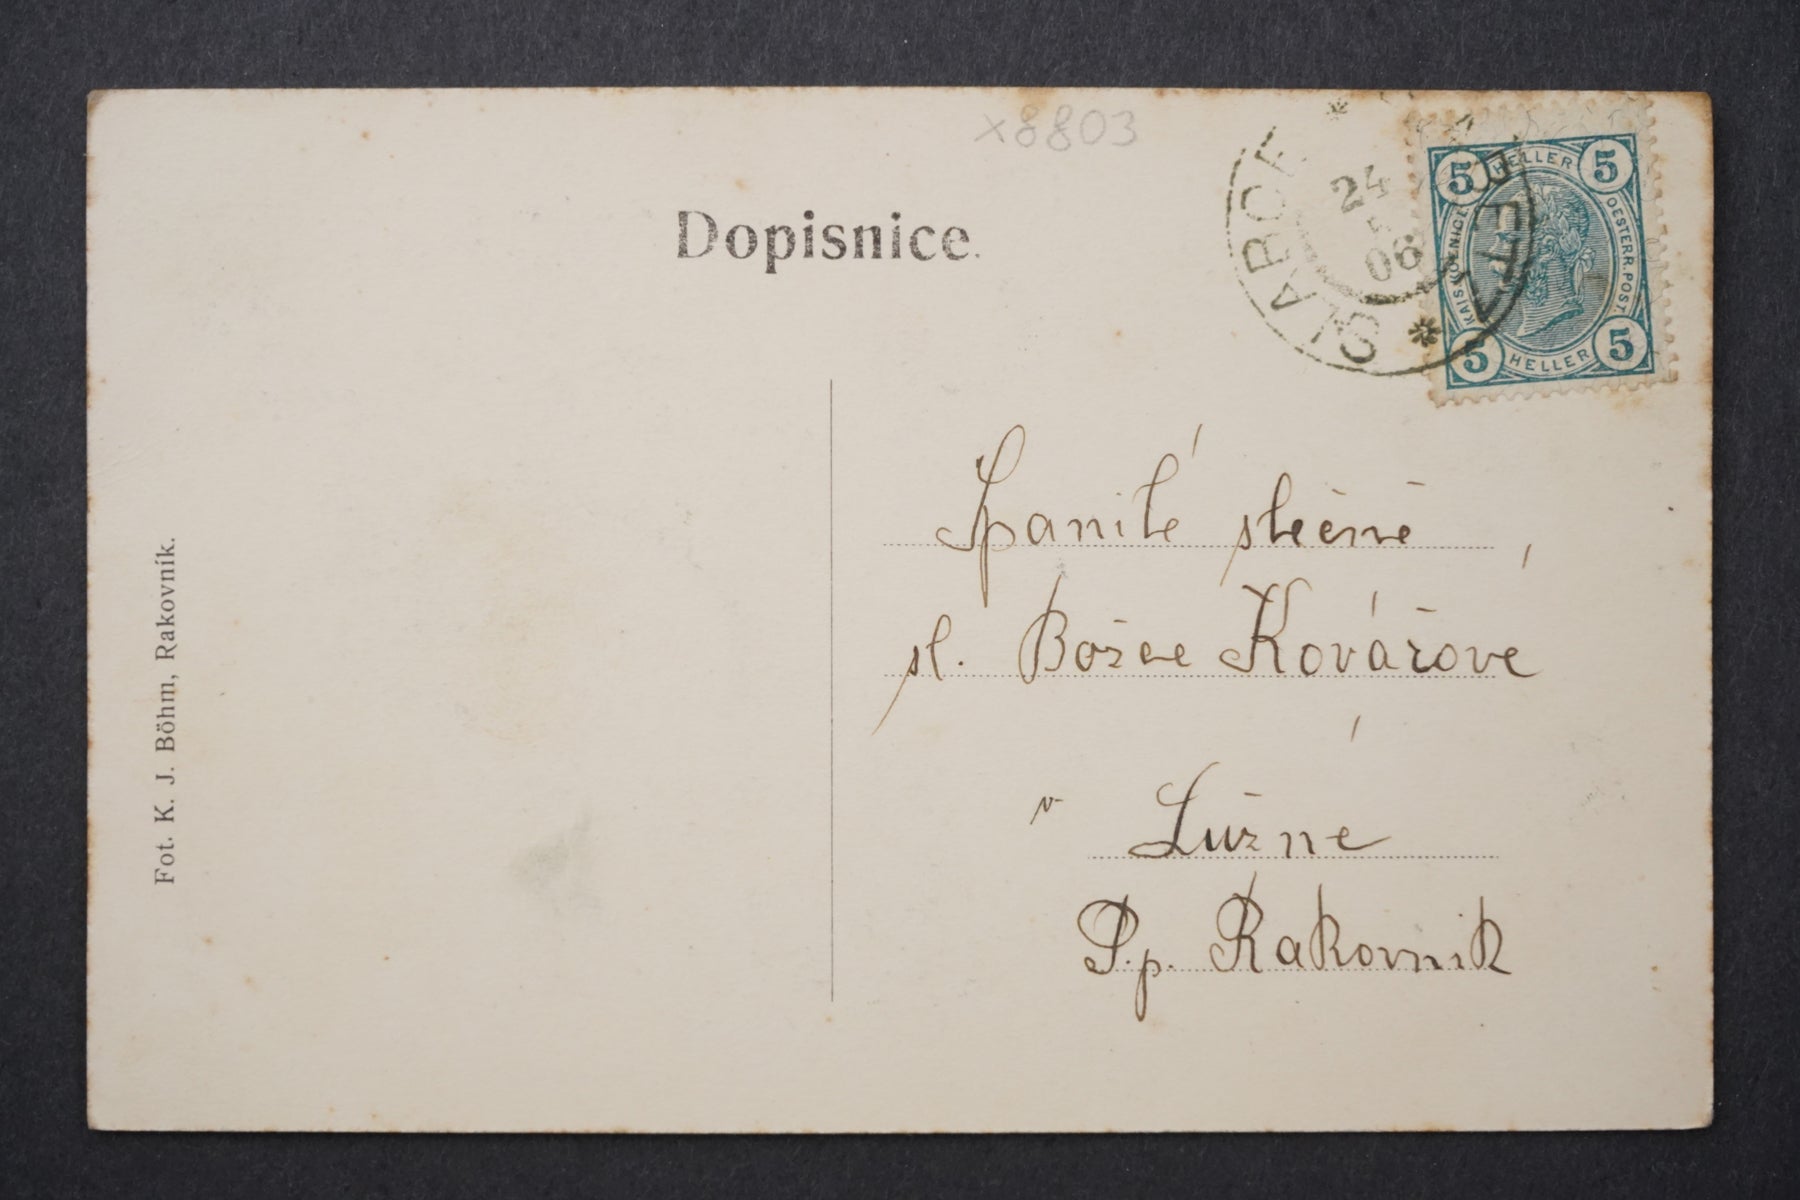 x8803
Dopisnice.
24
06
5 HELLER 5
KAIS. KÖNIGL. OESTERR. POST
5 HELLER 5
Spanilé slečně,
sl. Božce Kovářové
v Lužné
P.p. Rakovník
Fot. K. J. Böhm, Rakovník.